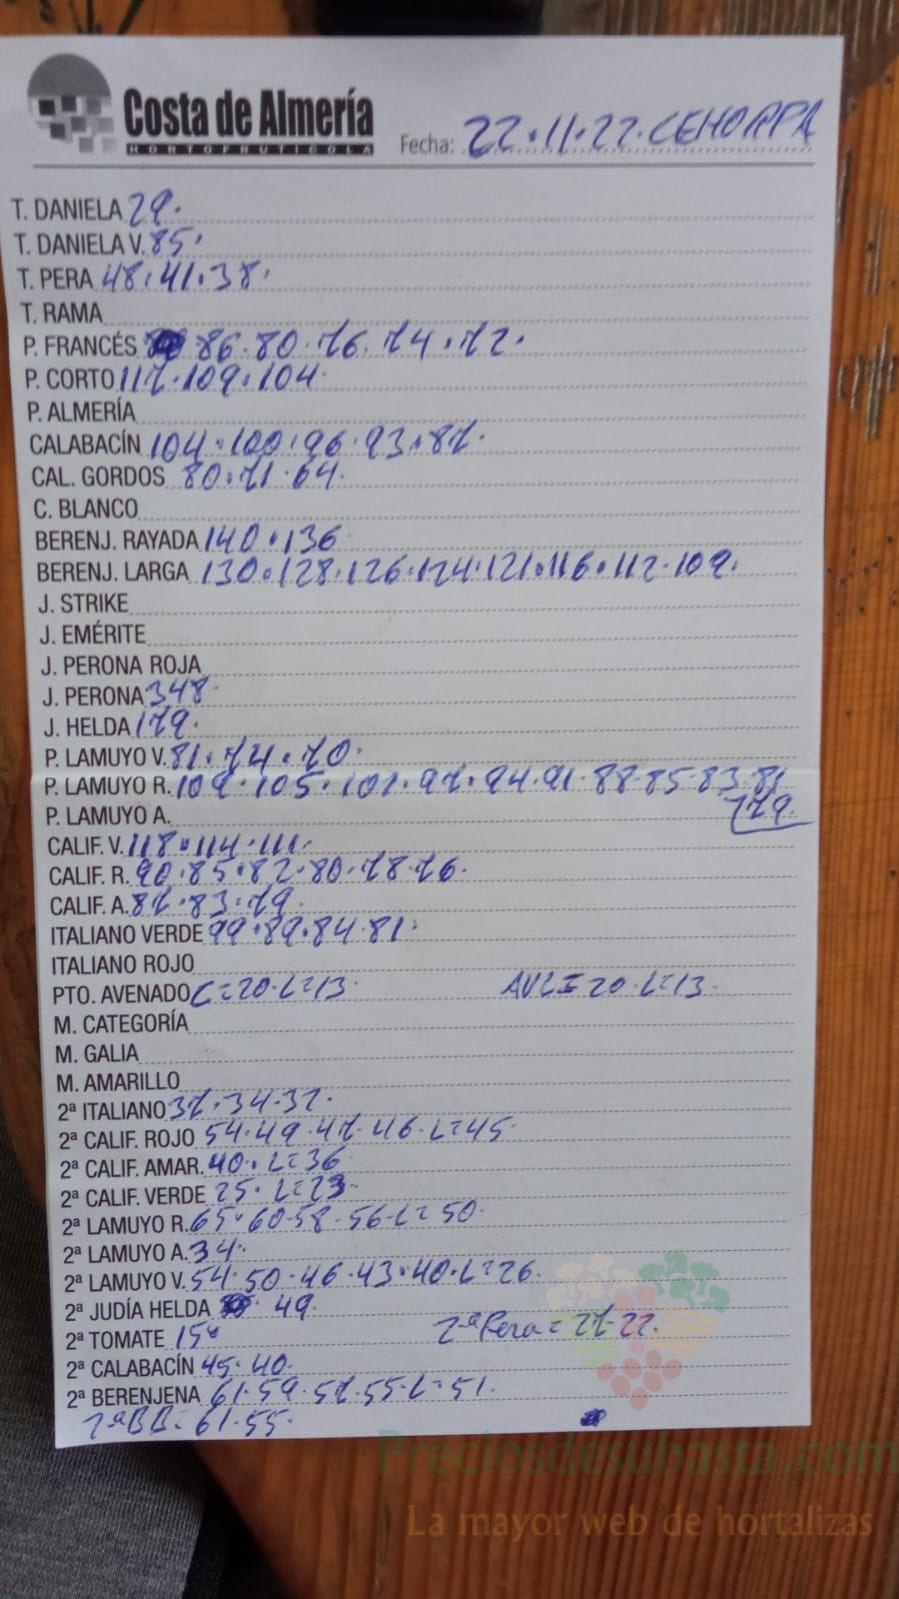 Costa de Almería
HORTOFRUTICOLA
Fecha: 22.11.22. CEHORPA
T. DANIELA 29.
T. DANIELA V. 85.
T. PERA 48.41.38.
T. RAMA
P. FRANCÉS 86.80.76.74.72.
P. CORTO 117.109.104.
P. ALMERÍA
CALABACÍN 104.100.96.93.87.
CAL. GORDOS 80.71.64.
C. BLANCO
BERENJ. RAYADA 140.136
BERENJ. LARGA 130.128.126.124.121.116.112.109.
J. STRIKE
J. EMÉRITE
J. PERONA ROJA
J. PERONA 348.
J. HELDA 179.
P. LAMUYO V. 81.74.70.
P. LAMUYO R. 109.105.101.97.94.91.88.85.83.81
P. LAMUYO A. 79.
CALIF. V. 118.114.111.
CALIF. R. 90.85.82.80.78.76.
CALIF. A. 87.83.79.
ITALIANO VERDE 99.89.84.81.
ITALIANO ROJO
PTO. AVENADO C=20.L=13. AVL=20.L=13.
M. CATEGORÍA
M. GALIA
M. AMARILLO
2ª ITALIANO 37.34.32.
2ª CALIF. ROJO 54.49.47.46.L=45.
2ª CALIF. AMAR. 40.L=36
2ª CALIF. VERDE 25.L=23.
2ª LAMUYO R. 65.60.58.56.L=50.
2ª LAMUYO A. 34.
2ª LAMUYO V. 54.50.46.43.40.L=26.
2ª JUDÍA HELDA 49.
2ª TOMATE 15. 2ªPera=27.22.
2ª CALABACÍN 45.40.
2ª BERENJENA 61.59.57.55.L=51.
2ªBB=61.55.
Preciosdesubasta.com
La mayor web de hortalizas